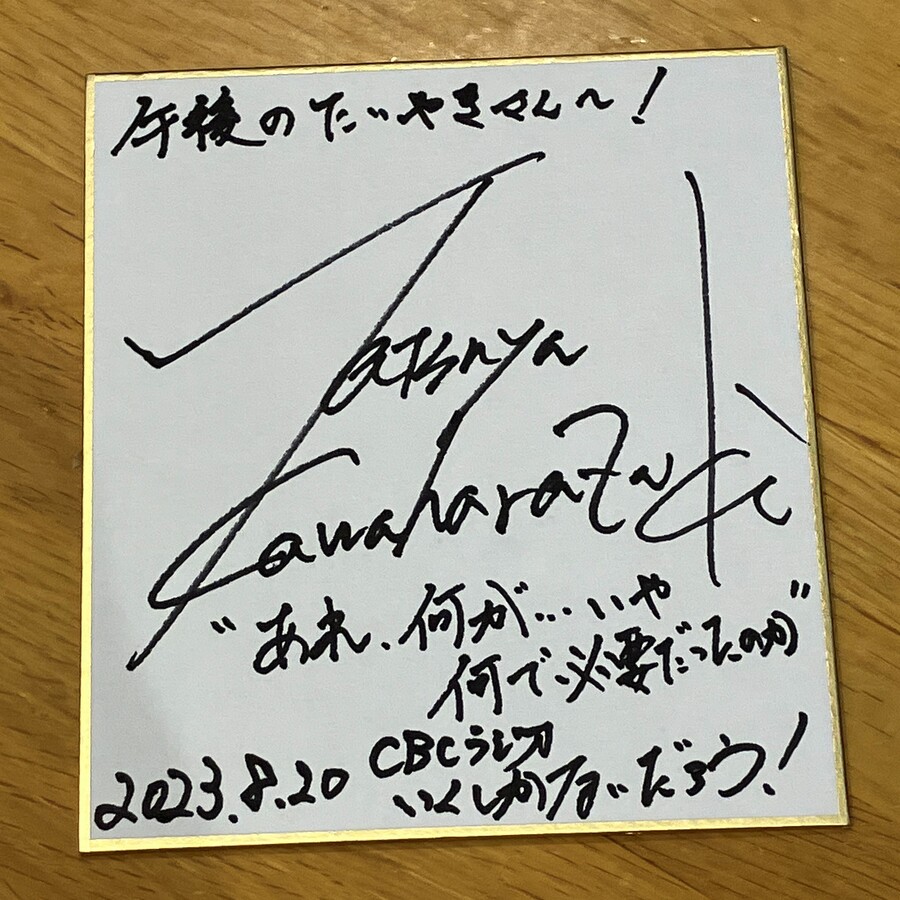 午後のたいやきさん〜!
Tatsuya
Kawaharazuki
"あれ、何が…いや
何で必要だったのか"
2023.8.20
CBCラジオ
いくしかないだろう!